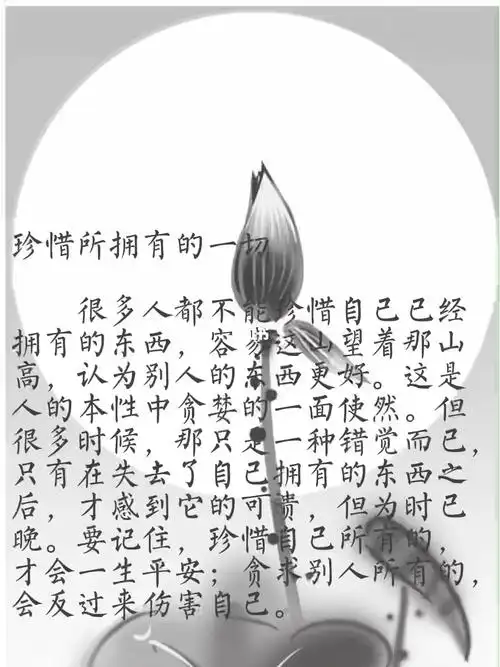 珍惜所拥有的一切
很多人都不能珍惜自己已经
拥有的东西，容易这山望着那山
高，认为别人的东西更好。这是
人的本性中贪婪的一面使然。但
很多时候，那只是一种错觉而已，
只有在失去了自己拥有的东西之
后，才感到它的可贵，但为时已
晚。要记住，珍惜自己所有的，
才会一生平安；贪求别人所有的，
会反过来伤害自己。